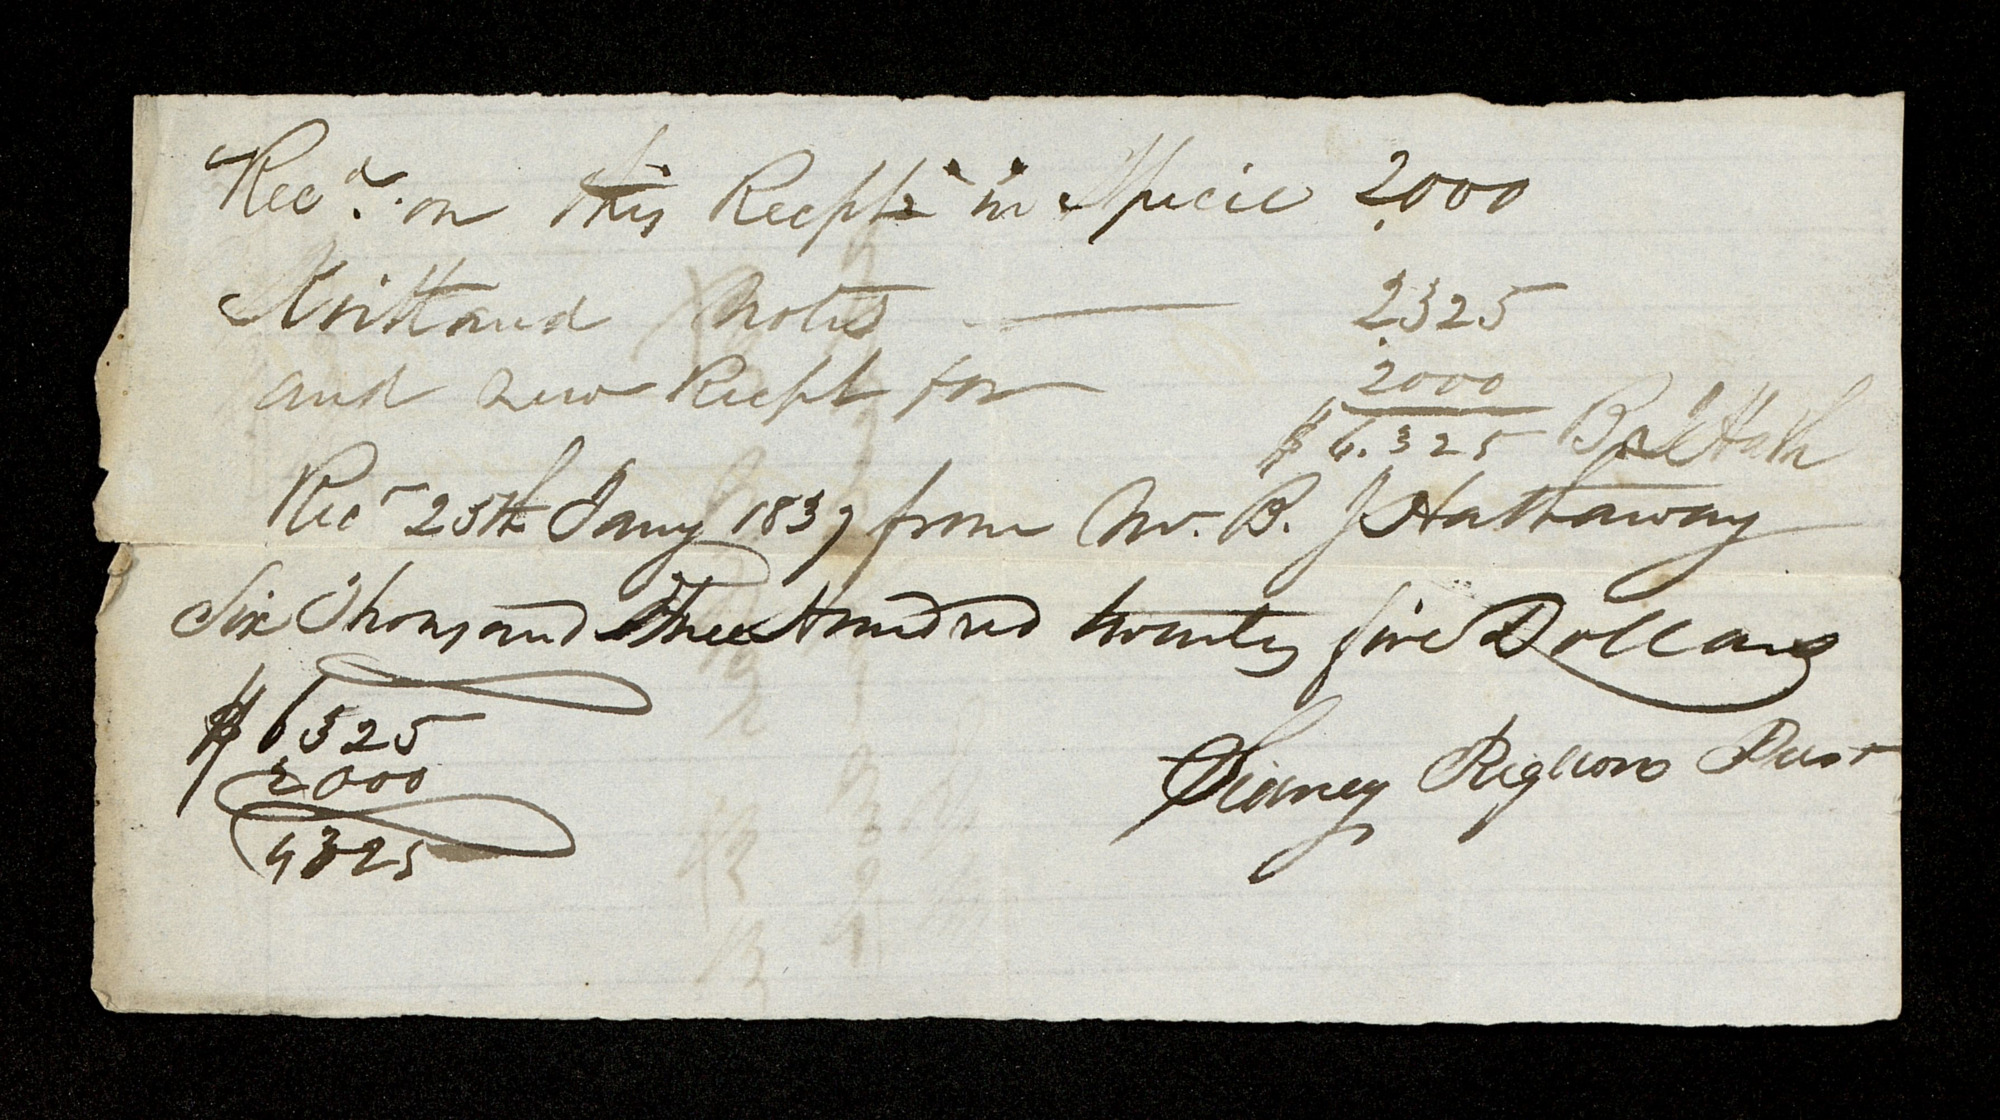 Recd. on this Recept in Specie 2000
Kirtland Notes — 2325
and new Recept for 2000
$6.325 B J Hath
Recd 25th Jany 1837 from Mr. B. J Hathaway
Six Thousand Three Hundred twenty five Dollars
$6325
2000
4325
Sidney Rigdon Prest